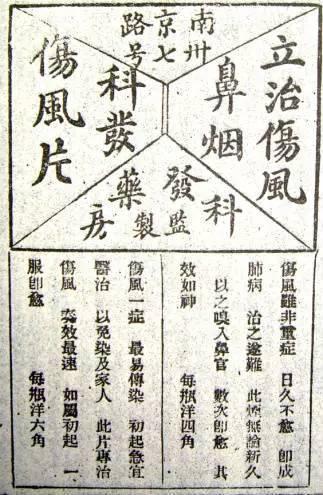 南京路
卅七号
立治傷風
鼻烟
科發
傷風片
科發藥房
監製
傷風雖非重症 日久不愈 即成
肺病 治之遂難 此煙無論新久
以之嗅入鼻官 數次即愈 其
效如神 每瓶洋四角
傷風一症 最易傳染 初起急宜
醫治 以免染及家人 此片專治
傷風 奏效最速 如屬初起 一
服即愈 每瓶洋六角